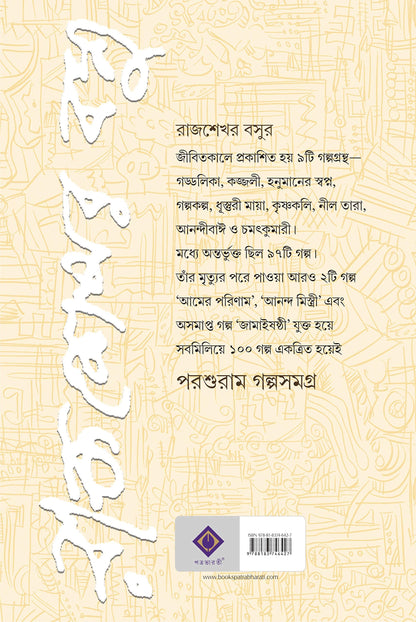 রাজশেখর বসু
রাজশেখর বসুর
জীবিতকালে প্রকাশিত হয় ৯টি গল্পগ্রন্থ—
গড্ডলিকা, কজ্জলী, হনুমানের স্বপ্ন,
গল্পকল্প, ধুস্তুরী মায়া, কৃষ্ণকলি, নীল তারা,
আনন্দীবাঈ ও চমৎকুমারী।
মধ্যে অন্তর্ভুক্ত ছিল ৯৭টি গল্প।
তাঁর মৃত্যুর পরে পাওয়া আরও ২টি গল্প
‘আমের পরিণাম’, ‘আনন্দ মিস্ত্রী’ এবং
অসমাপ্ত গল্প ‘জামাইষষ্ঠী’ যুক্ত হয়ে
সবমিলিয়ে ১০০ গল্প একত্রিত হয়েই
পরশুরাম গল্পসমগ্র
পত্রভারতী
ISBN 978-81-8374-442-7
9 788183 744427
www.bookspatrabharati.com